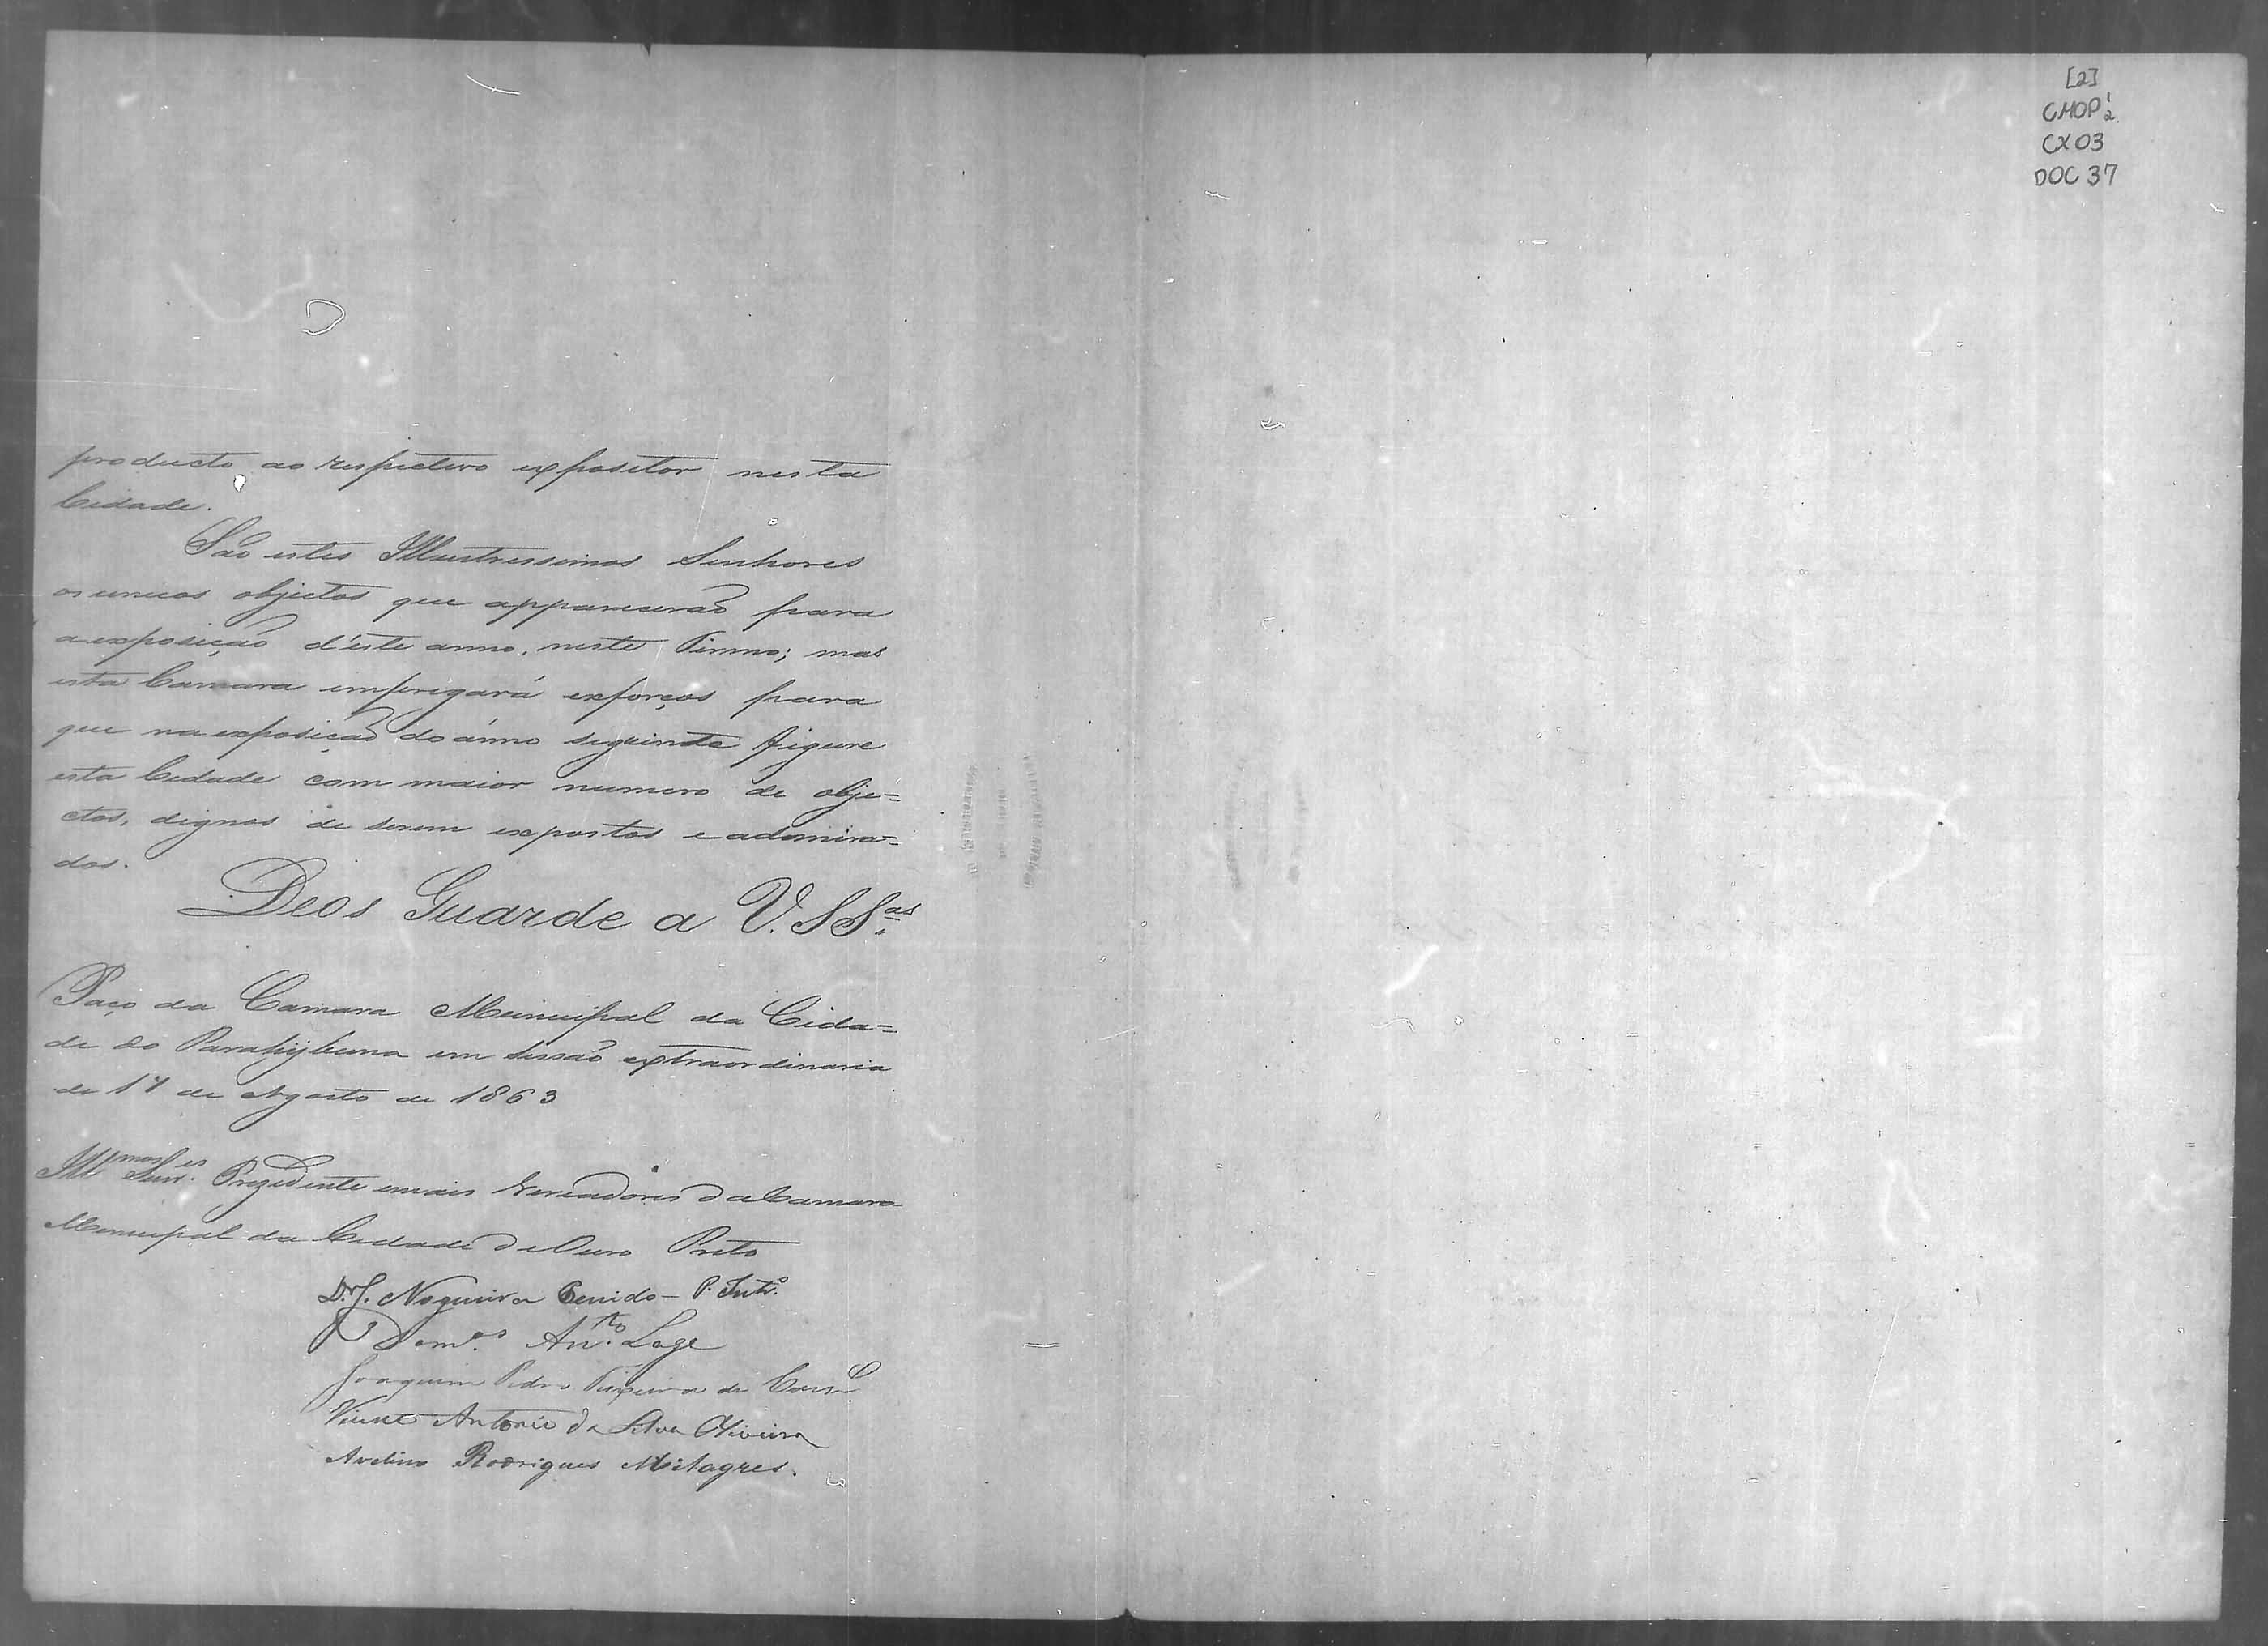 producto ao respectivo expositor nesta
Cidade.
São estes Illustrissimos Senhores
os unicos objectos que apparecerão para
a exposição d'este anno, neste Termo; mas
esta Camara empregará exforços para
que na exposição do anno seguinte figure
esta Cidade com maior numero de obje=
ctos, dignos de serem expostos e admira=
dos.
Deos Guarde a V. SSas.
Paço da Camara Municipal da Cida=
de do Parahybuna em Sessão extraordinaria
de 17 de Agosto de 1863
Illmos Senres. Prezidente e mais Vereadores da Camara
Municipal da Cidade de Ouro Preto
Dr. J. Nogueira Penido - P. Intro.
Domos. Anto. Lage
Joaquim Pedro Teixeira de
Vicente Antonio da Silva Oliveira
Avelino Rodrigues Milagres.
[2]
CMOP 1/2
CX 03
DOC 37